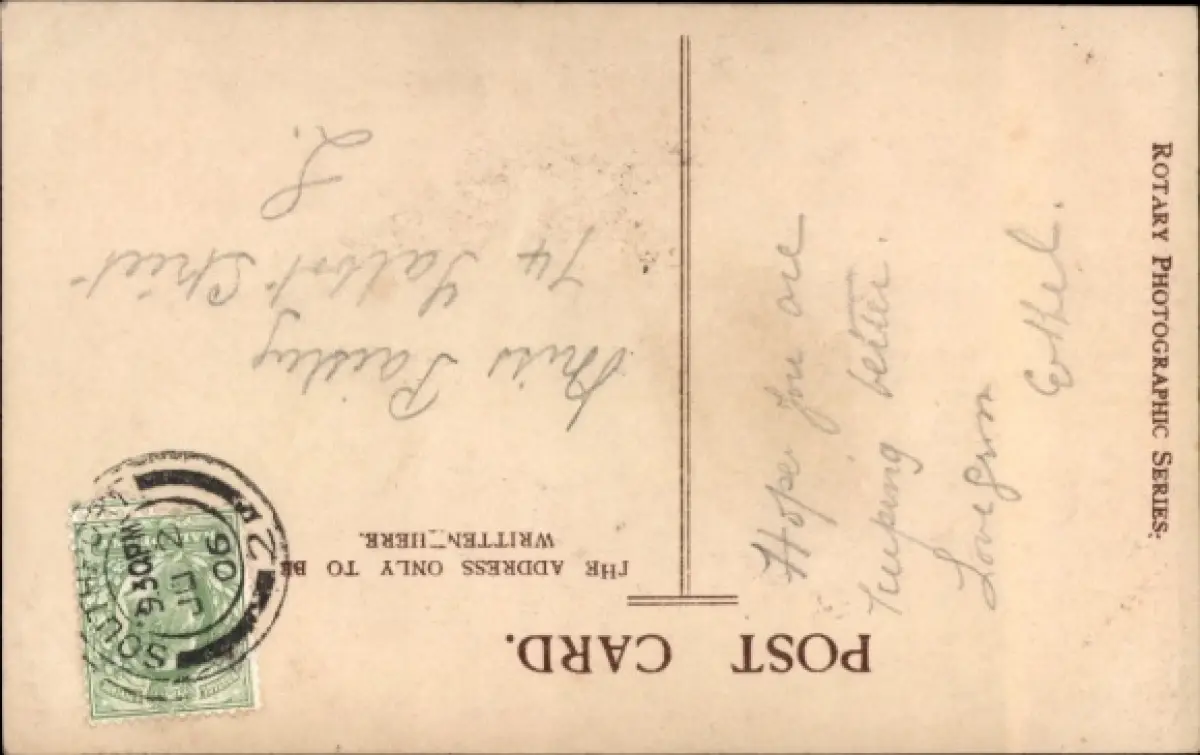 POST CARD.
THE ADDRESS ONLY TO BE
WRITTEN HERE.
ROTARY PHOTOGRAPHIC SERIES.
Hope you are
keeping better.
Love from
Ethel.
Miss Paisley
74 Talbot Street
S.
9.30PM
JU 2
06